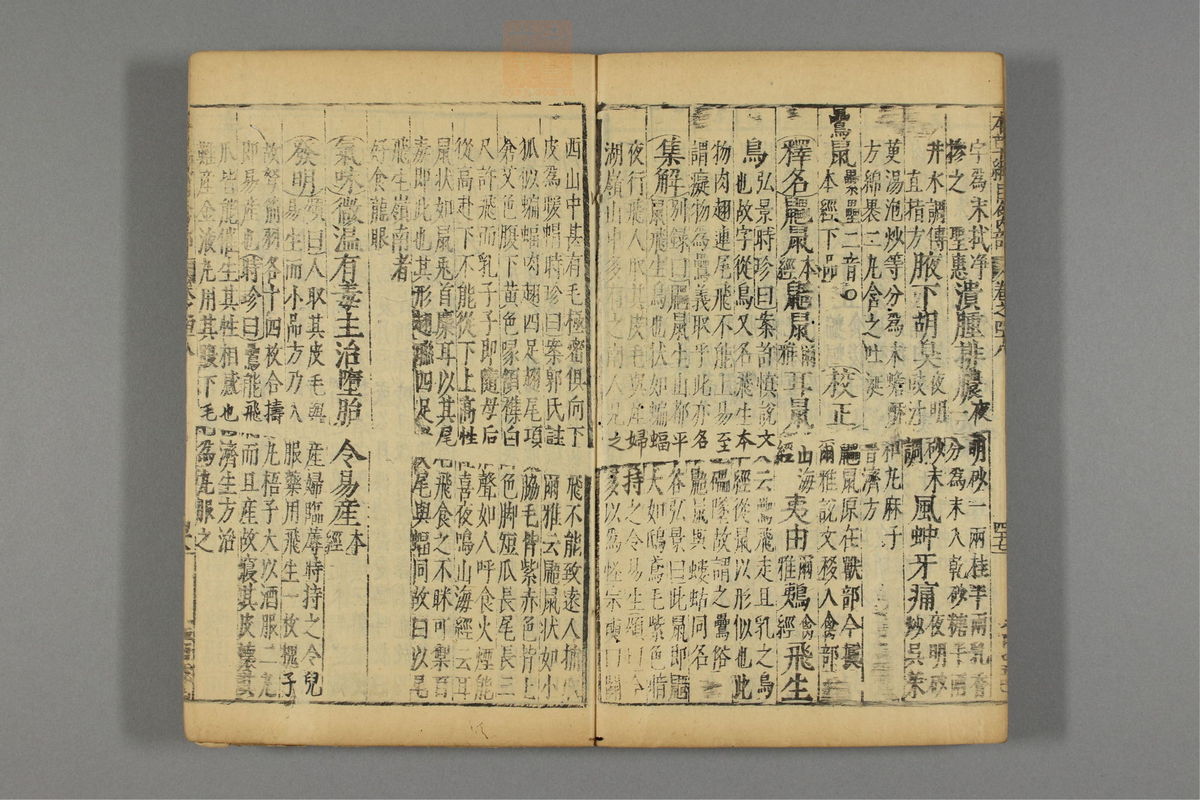 字為末拭净
摻之 聖惠 潰腫排膿 夜明砂一兩桂半兩乳香
分為末入乾砂糖半兩
井水調傅
直指方 腋下胡臭 夜明砂末豉汁調 風蚛牙痛 夜明砂炒吳茱
萸湯泡炒等分為末蟾酥和丸麻子
方綿裹二丸含之吐涎 普濟方
鸓鼠 二音。本經下品 校正 鼺鼠原在獸部今據爾雅說文移入禽部
釋名鼺鼠本經鼯鼠爾雅耳鼠山海經夷由爾雅鸓禽經飛生
鳥弘景時珍曰案許慎說文云鸓飛走且乳之鳥
也故字從鳥又名飛生本經從鼠以形似也此
物肉翅連尾飛不能上易至礧墜故謂之鸓俗
謂癡物為鸓義取乎此亦名鼯鼠與螻蛄同名
集解別錄曰鼺鼠生山都平谷弘景曰此鼠即鼯
鼠飛生鳥也狀如蝙蝠大如鴟鳶毛紫色暗
夜行飛人取其皮毛與產婦持之令易生頌曰今
湖嶺山中多有之南人見之多以為怪宗奭曰關
西山中甚有毛極密俱向下飛不能致遠人捕取
皮為暖帽時珍曰案郭氏註爾雅云鼯鼠狀如小
狐似蝙蝠肉翅四足翅尾項脇毛皆紫赤色背上
蒼艾色腹下黃色喙頷雜白色脚短爪長尾長三
尺許飛而乳子子即隨母后聲如人呼食火煙能
從高赴下不能從下上高性喜夜鳴山海經云耳
鼠狀如鼠兎首麋耳以其尾飛食之不眯可禦百
毒即此也其形翅聯四足及尾與蝠同故曰以尾
飛生嶺南者
好食龍眼
氣味微溫有毒主治墮胎令易產本經
發明頌曰人取其皮毛與產婦臨蓐時持之令兒
易生而小品方乃入服藥用飛生一枚槐子
故弩箭羽各十四枚合擣丸梧子大以酒服二丸
即易產也時珍曰鸓能飛而且產故寢其皮懷其
爪皆能催生其性相感也濟生方治
難產金液丸用其腹下毛為丸服之